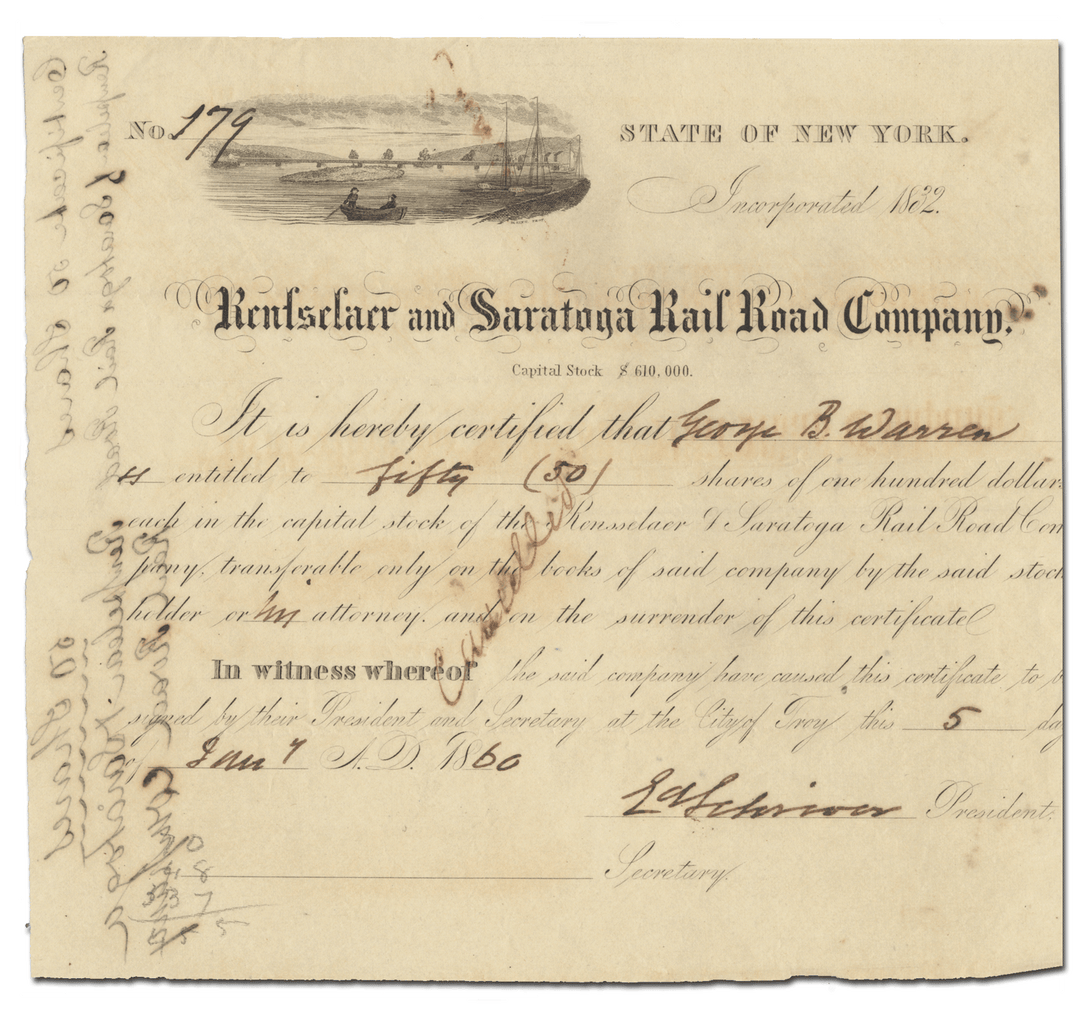 No. 179
STATE OF NEW YORK.
Incorporated 1832.
Rensselaer and Saratoga Rail Road Company.
Capital Stock $ 610,000.
It is hereby certified that George B. Warren
is entitled to fifty (50) shares of one hundred dollar
each in the capital stock of the Rensselaer & Saratoga Rail Road Com
pany, transferable only on the books of said company by the said stock
holder or his attorney, and on the surrender of this certificate
Cancelled
In witness whereof the said company have caused this certificate to b
signed by their President and Secretary at the City of Troy this 5 day
of Jany A.D. 1860
Ed Schriver President.
Secretary.